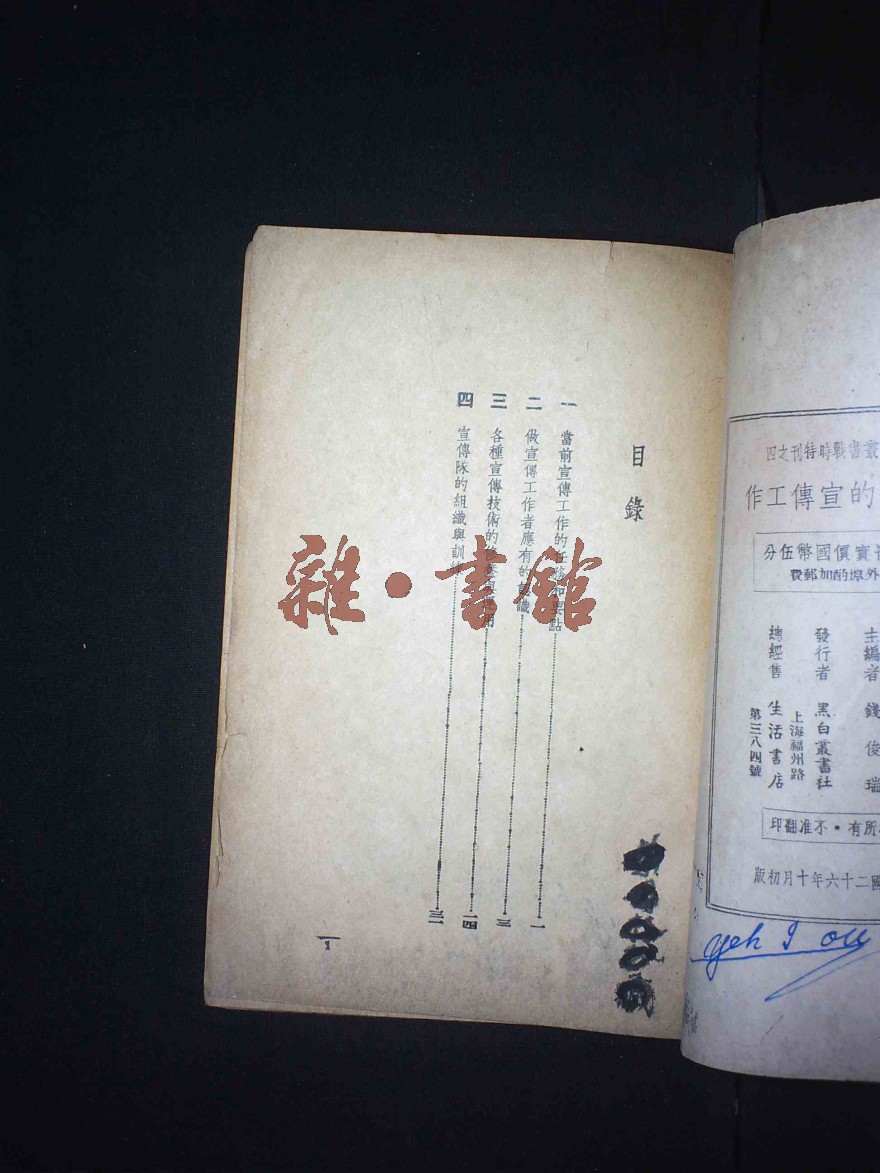 目錄
一 當前宣傳工作的任務和要點 一
二 做宣傳工作者應有的認識 三
三 各種宣傳技術的 用 一四
四 宣傳隊的組織與訓練 三一
1
雜·書館
叢書戰時特刊之四
的宣傳工作
實價國幣伍分
外埠酌加郵費
主編者 錢俊瑞
發行者 黑白叢書社
上海福州路
總經售 生活書店
第三八四號
所有·不准翻印
國二十六年十月初版
yeh I